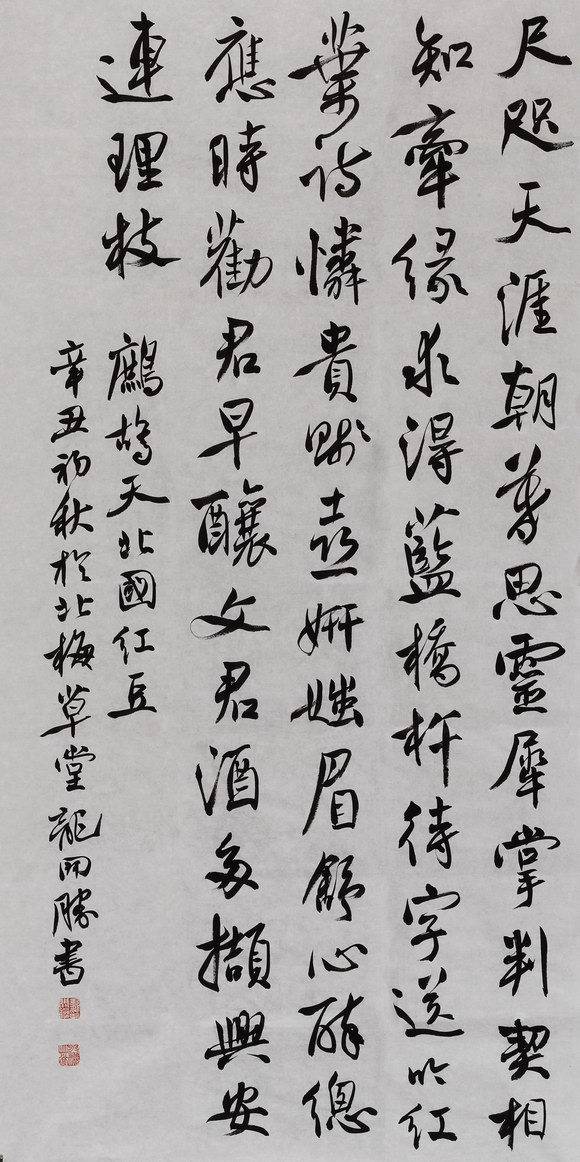 尺咫天涯朝暮思靈犀掌判契相
知牽緣求得藍橋杵待字送吟红
葉詩憐貴賤妍媸眉舒心醉總
應時勸君早釀文君酒多擷興安
連理枝
鷓鴣天北國红豆
辛丑初秋於北梅草堂龍開勝書